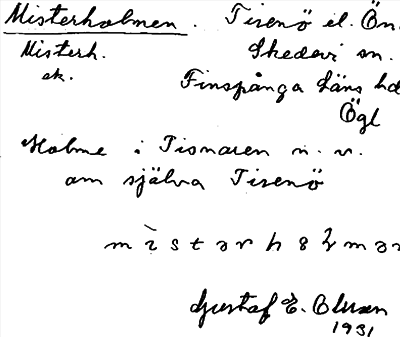 Misterholmen. Tisenö el. Ön
Misterh. Skedevi sn.
ek. Finspånga läns hd
Ögl
Holme i Tisnaren n. v.
om själva Tisenö
Gustaf E. Olsson
1931